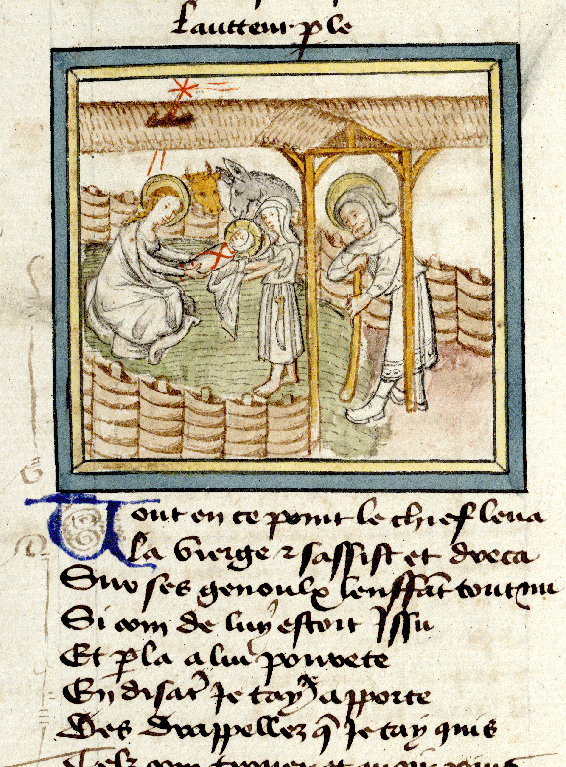 Lautteur ple
Tout en ce point le chief leua
La vierge ⁊ sassist et dreca
Suo ses genoulx lenffãt tout nu
Si com de luy estoit Jssu
Et pla a lui pourete
En disãt Je tay apporte
Des drappellez q̃ Je tay quis